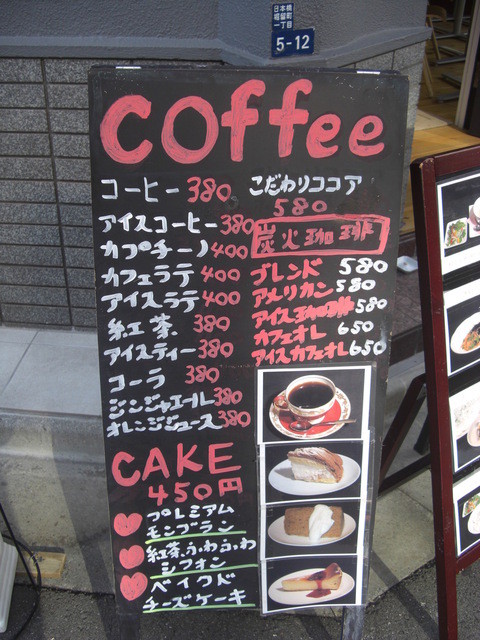 日本橋
堀留町
一丁目
5-12
coffee
コーヒー 380
アイスコーヒー 380
カプチーノ 400
カフェラテ 400
アイスラテ 400
紅茶 380
アイスティー 380
コーラ 380
ジンジャエール 380
オレンジジュース 380
こだわりココア
580
炭火珈琲
ブレンド 580
アメリカン 580
アイス珈琲 580
カフェオレ 650
アイスカフェオレ 650
CAKE
450円
プレミアム
モンブラン
紅茶ふわふわ
シフォン
ベイクド
チーズケーキ